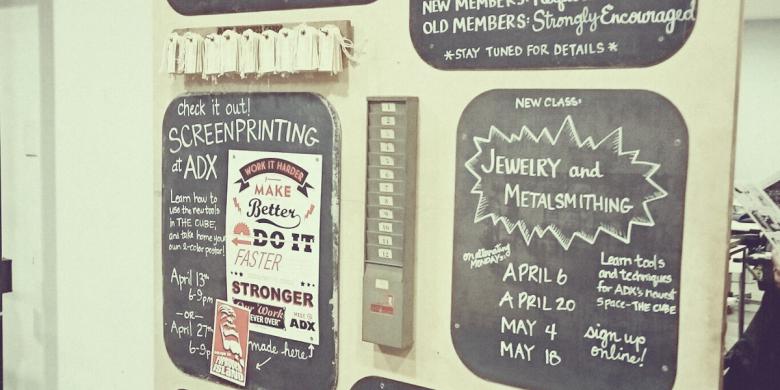 NEW MEMBERS:
OLD MEMBERS: Strongly Encouraged
*STAY TUNED FOR DETAILS*
check it out!
SCREENPRINTING
at ADX
Learn how to
use the new tools
in THE CUBE,
and take home your
own 2-color poster!
April 13th
6-9pm
-OR-
April 27th
6-9p
WORK IT HARDER
MAKE
Better
DO IT
FASTER
STRONGER
Our Work
EVER OVER"
MADE @
ADX
made here↑
1
2
3
4
5
6
7
8
9
10
11
12
NEW CLASS:
JEWELRY and
METALSMITHING
on alternating
MONDAYS:
APRIL 6
APRIL 20
MAY 4
MAY 18
Learn tools
and techniques
for ADX's newest
space-THE CUBE
sign up
online!